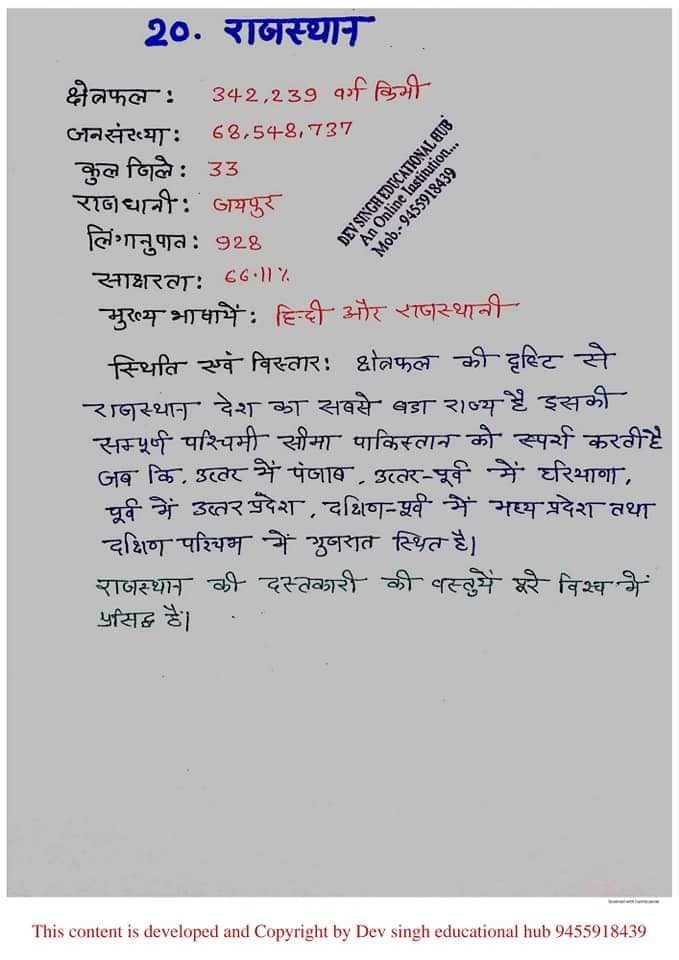 20. राजस्थान
क्षेत्रफल : 342,239 वर्ग किमी
जनसंख्या : 68,548,737
कुल जिले : 33
राजधानी : जयपुर
लिंगानुपात : 928
साक्षरता : 66.11%
मुख्य भाषायें : हिन्दी और राजस्थानी
DEV SINGH EDUCATIONAL HUB
An Online Institution...
Mob.- 9455918439
स्थिति एवं विस्तार : क्षेत्रफल की दृष्टि से
राजस्थान देश का सबसे बडा राज्य है इसकी
सम्पूर्ण पश्चिमी सीमा पाकिस्तान को स्पर्श करती है
जब कि, उत्तर में पंजाब, उत्तर-पूर्व में हरियाणा,
पूर्व में उत्तर प्रदेश, दक्षिण-पूर्व में मध्य प्रदेश तथा
दक्षिण पश्चिम में गुजरात स्थित है।
राजस्थान की दस्तकारी की वस्तुयें पूरे विश्व में
प्रसिद्ध हैं।
Scanned with CamScanner
This content is developed and Copyright by Dev singh educational hub 9455918439